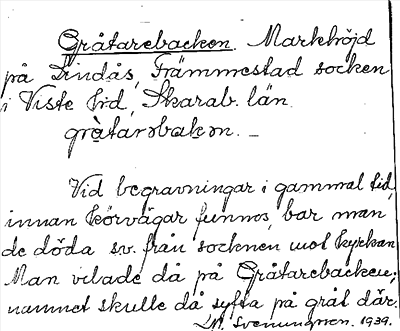 Gråtarebacken. Markhöjd
på Lindås, Främmestad socken
i Viste hd, Skarab. län.
gràtarəbakən. –
Vid begravningar i gammal tid,
innan körvägar funnos, bar man
de döda sv. från socknen mot kyrkan.
Man vilade då på Gråtarebacken;
namnet skulle då syfta på gråt där.
Sveningsson. 1939.